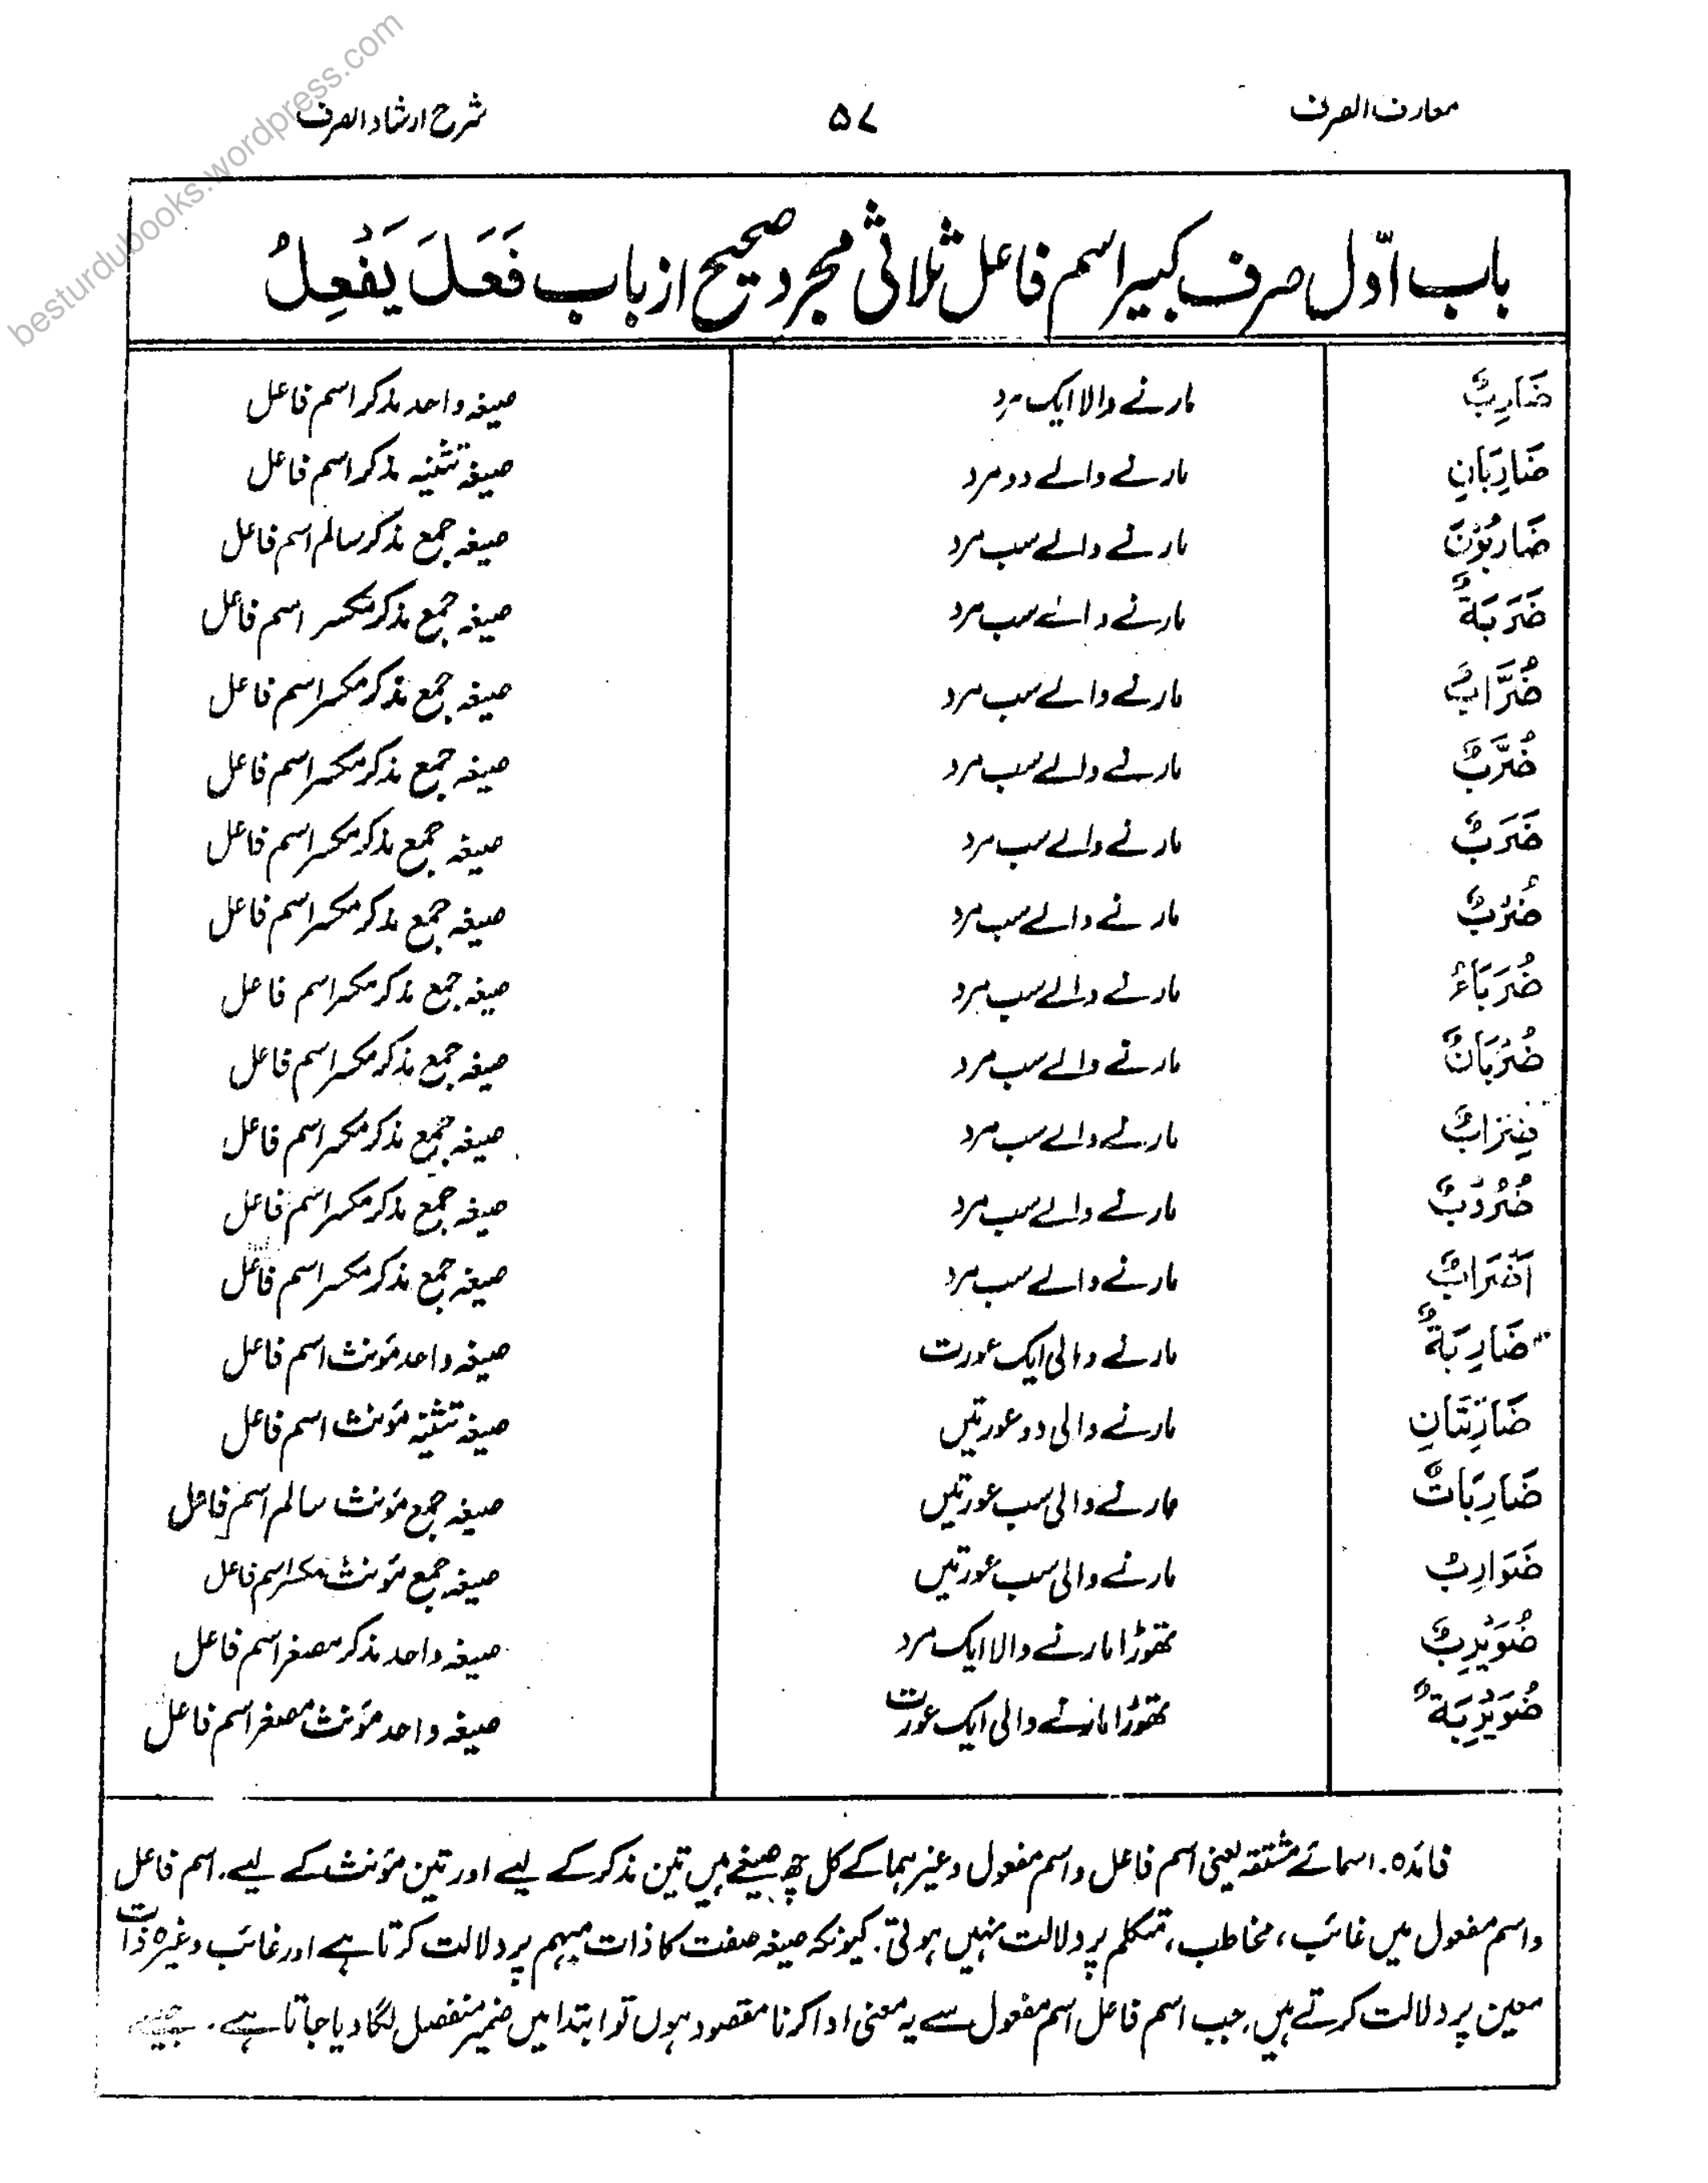 معارف الصرف ۵۷ شرح ارشاد الصرف
besturdubooks.wordpress.com
باب اوّل صرف کبیر اسم فاعل ثلاثی مجرد صحیح از باب فَعَلَ یَفْعِلُ
ضَارِبٌ مارنے والا ایک مرد صیغہ واحد مذکر اسم فاعل
ضَارِبَانِ مارنے والے دو مرد صیغہ تثنیہ مذکر اسم فاعل
ضَارِبُوْنَ مارنے والے سب مرد صیغہ جمع مذکر سالم اسم فاعل
ضَرَبَةٌ مارنے والے سب مرد صیغہ جمع مذکر مکسر اسم فاعل
ضُرَّابٌ مارنے والے سب مرد صیغہ جمع مذکر مکسر اسم فاعل
ضُرَّبٌ مارنے والے سب مرد صیغہ جمع مذکر مکسر اسم فاعل
ضَرَبٌ مارنے والے سب مرد صیغہ جمع مذکر مکسر اسم فاعل
ضُرُبٌ مارنے والے سب مرد صیغہ جمع مذکر مکسر اسم فاعل
ضُرَبَاءُ مارنے والے سب مرد صیغہ جمع مذکر مکسر اسم فاعل
ضُرْبَانٌ مارنے والے سب مرد صیغہ جمع مذکر مکسر اسم فاعل
ضِرَابٌ مارنے والے سب مرد صیغہ جمع مذکر مکسر اسم فاعل
ضُرُوْبٌ مارنے والے سب مرد صیغہ جمع مذکر مکسر اسم فاعل
اَضْرَابٌ مارنے والے سب مرد صیغہ جمع مذکر مکسر اسم فاعل
ضَارِبَةٌ مارنے والی ایک عورت صیغہ واحد مؤنث اسم فاعل
ضَارِبَتَانِ مارنے والی دو عورتیں صیغہ تثنیہ مؤنث اسم فاعل
ضَارِبَاتٌ مارنے والی سب عورتیں صیغہ جمع مؤنث سالم اسم فاعل
ضَوَارِبُ مارنے والی سب عورتیں صیغہ جمع مؤنث مکسر اسم فاعل
ضُوَیْرِبٌ تھوڑا مارنے والا ایک مرد صیغہ واحد مذکر مصغر اسم فاعل
ضُوَیْرِبَةٌ تھوڑا مارنے والی ایک عورت صیغہ واحد مؤنث مصغر اسم فاعل
فائدہ۔ اسمائے مشتقہ یعنی اسم فاعل و اسم مفعول وغیرہما کے کل چھ صیغے ہیں تین مذکر کے لیے اور تین مؤنث کے لیے۔ اسم فاعل
و اسم مفعول میں غائب، مخاطب، متکلم پر دلالت نہیں ہوتی۔ کیونکہ صیغہ صفت کا ذات مبہم پر دلالت کرتا ہے اور غائب وغیرہ ذات
معین پر دلالت کرتے ہیں۔ جب اسم فاعل اسم مفعول سے یہ معنی ادا کرنا مقصود ہوں تو ابتدا میں ضمیر منفصل لگا دیا جاتا ہے۔ جیسے